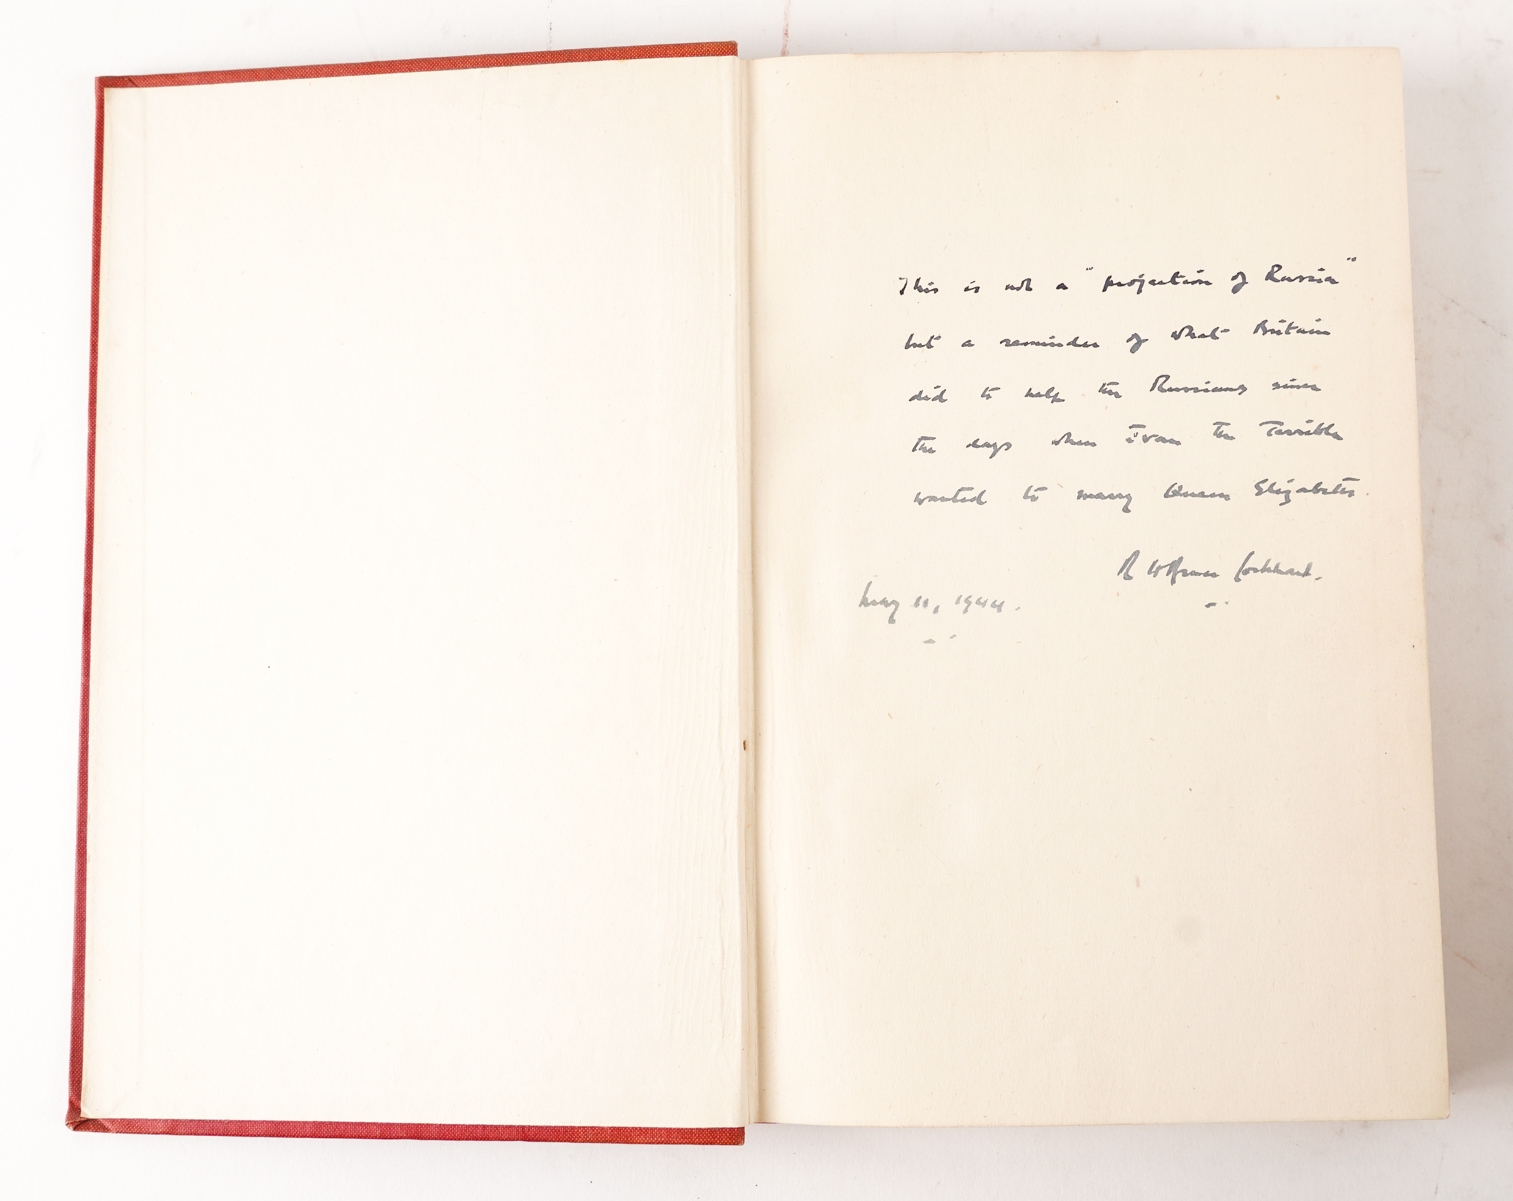 This is not a "projection of Russia"
but a reminder of what Britain
did to help the Russians since
the days when Ivan the Terrible
wanted to marry Queen Elizabeth.
R H Bruce Lockhart.
May 11, 1944.